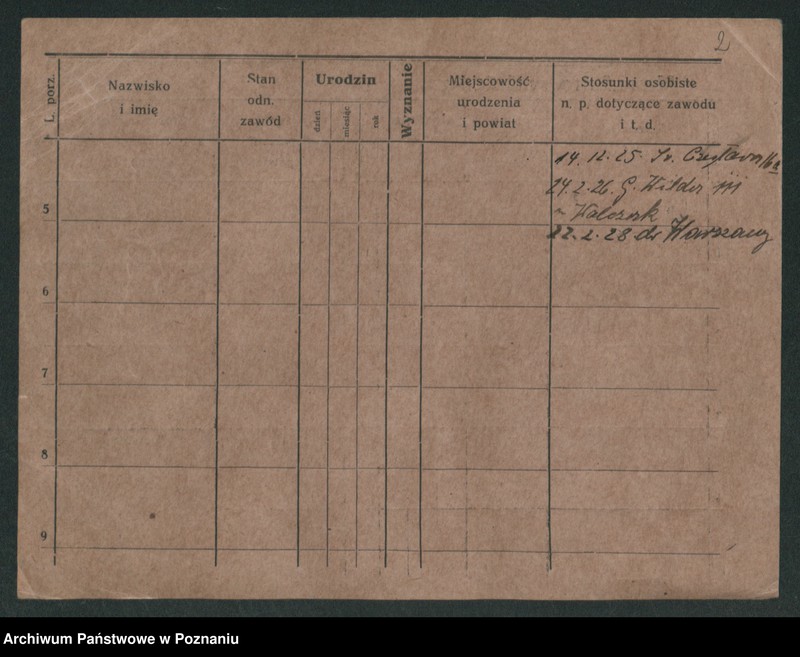 2
L. porz.
Nazwisko
i imię
Stan
odn.
zawód
Urodzin
dzień
miesiąc
rok
Wyznanie
Miejscowość
urodzenia
i powiat
Stosunki osobiste
n. p. dotyczące zawodu
i t. d.
14. 12. 25. Św. Czesława
24. 2. 26. G. Wilda
Walczak
22. 2. 28 do Warszawy
5
6
7
8
9
Archiwum Państwowe w Poznaniu